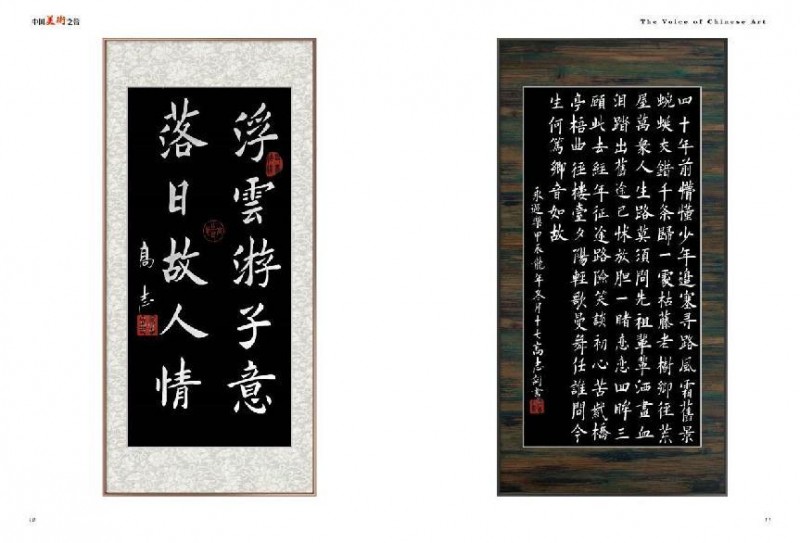 中国美術之音
The Voice of Chinese Art
浮雲游子意
落日故人情
高志
四十年前懵懂少年進塞尋路風霜舊景
蜿蜒交錯千条歸一蒙枯藤老樹鄉徑荒
屋萬衆人生路莫須問先祖輩輩洒盡血
泪踏出舊途已怵放胆一睹恋恋四眸三
頤此去經年征途路險笑談初心苦甙橋
亭梧曲徑樓臺夕陽輕歌曼舞任誰問今
生何篤鄉音如故
永遇樂甲辰龍年冬月十七高志句書